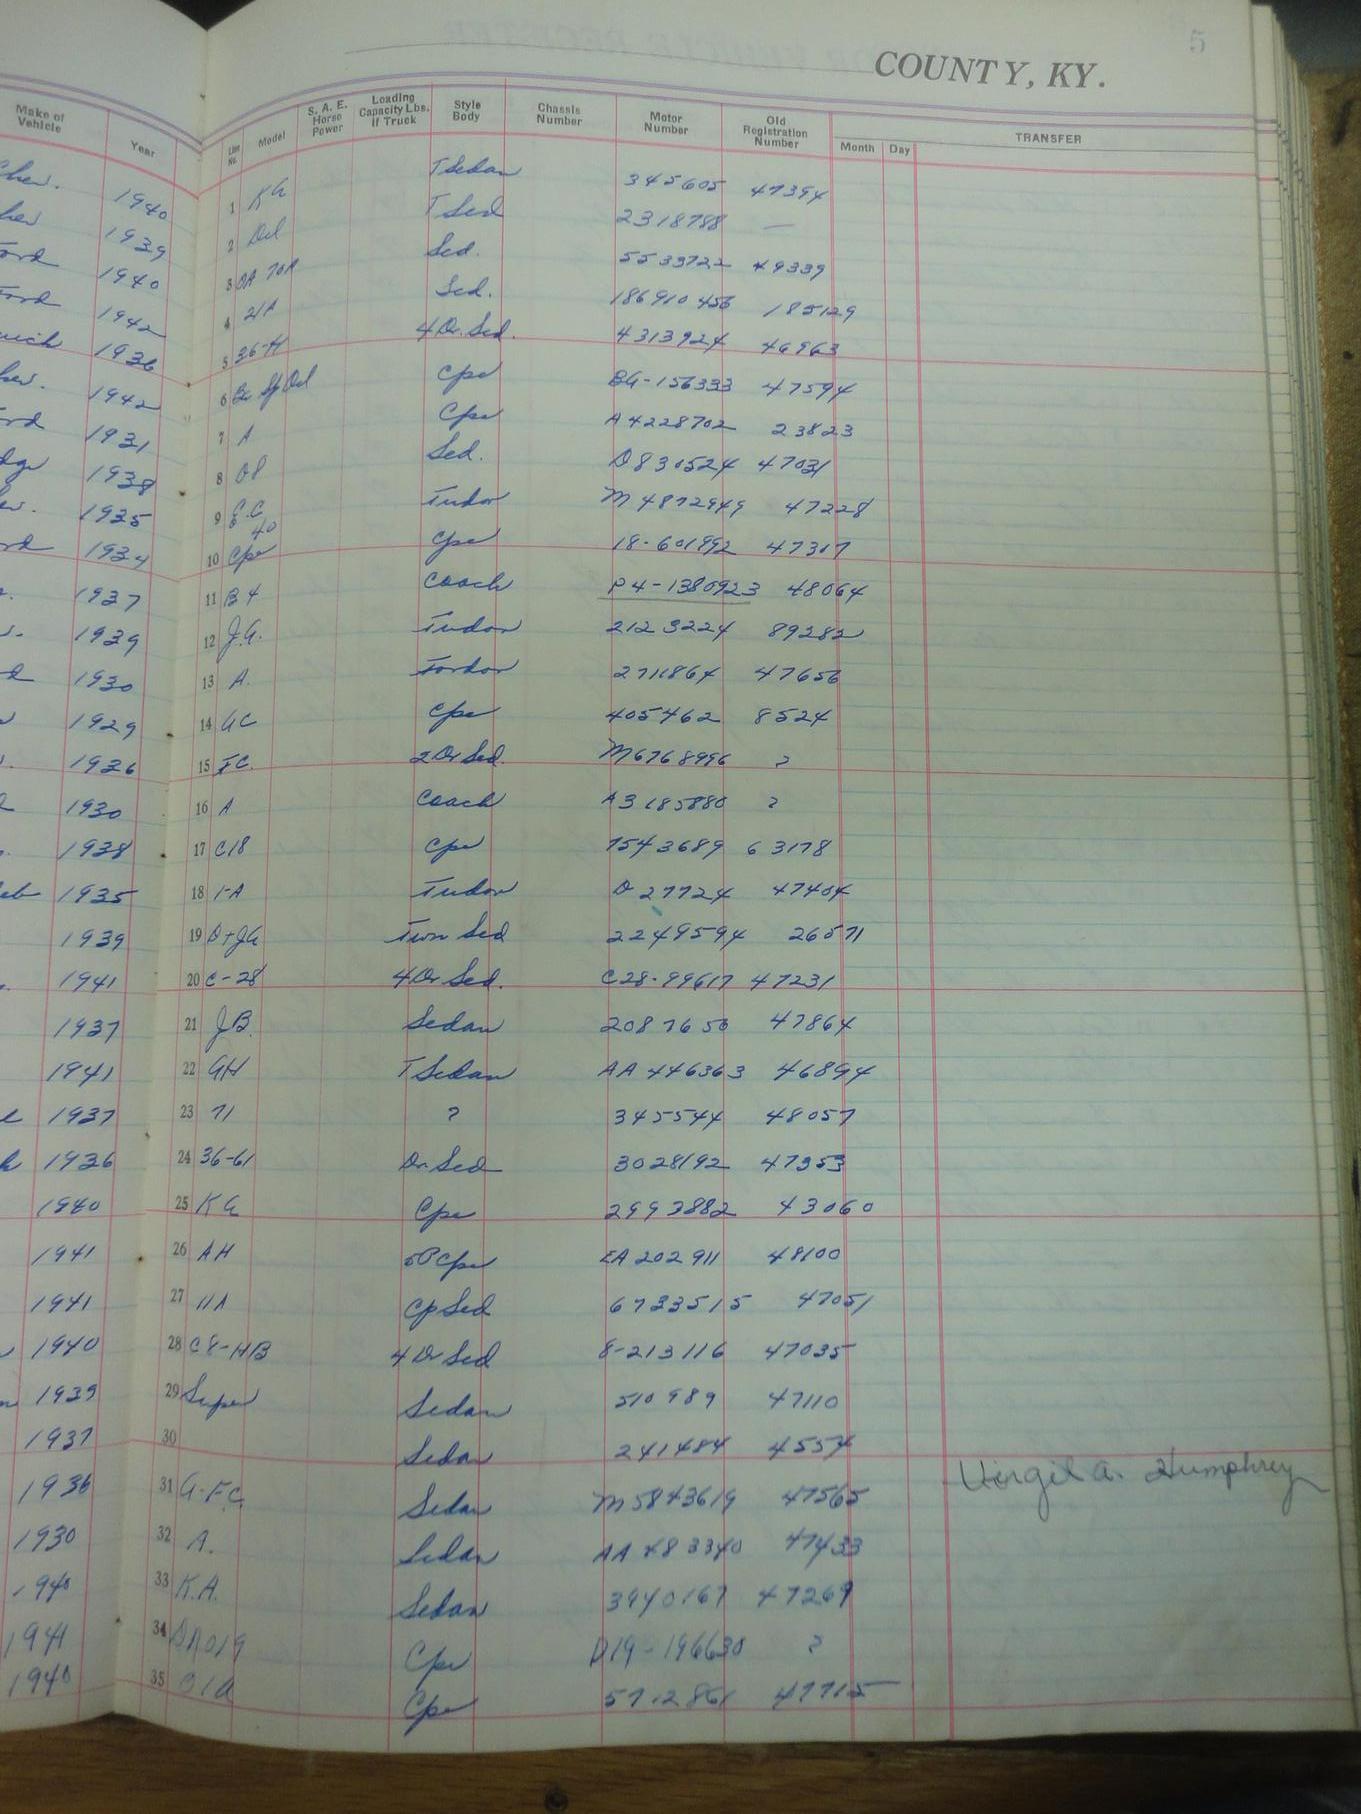 5
COUNTY, KY.
Make of Vehicle Year Line No. Model S. A. E. Horse Power Loading Capacity Lbs. If Truck Style Body Chassis Number Motor Number Old Registration Number Month Day TRANSFER
1940 1 KA T Sedan 345605 47394
1939 2 Del T Sed 2318788 —
1940 3 OA 70A Sed. 5539722 49339
1942 4 21A Sed. 186910456 185129
1936 5 36-H 4 Dr. Sed. 4313924 46963
1942 6 Cpe BG-156333 47594
1931 7 A Cpe A4228702 23823
1938 8 D8 Sed. D830524 47031
1935 9 E.C Tudor M 4872949 47228
1934 10 40 Cpe Cpe 18-601992 47317
1937 11 B4 Coach P4-1380923 48064
1939 12 J.A. Tudor 2123224 89282
1930 13 A. Fordor 2711864 47656
1929 14 AC Cpe 405462 8524
1936 15 FC. 2 Dr Sed. M6768996 ?
1930 16 A Coach A3185880 ?
1938 17 C18 Cpe 7543689 63178
1935 18 1-A Tudor D 27724 47404
1939 19 D+JA Twn Sed 2249594 26571
1941 20 C-28 4 Dr Sed. C28-99617 47231
1937 21 J.B. Sedan 2087650 47864
1941 22 AH T Sedan AA 446363 46894
1937 23 71 ? 345544 48057
1936 24 36-61 Dr. Sed 3028192 47353
1940 25 KA Cpe 2993882 43060
1941 26 AH 5P Cpe EA 202911 48100
1941 27 11A Cp Sed 6733515 47051
1940 28 C8-HB 4 Dr Sed 8-213116 47035
1939 29 Super Sedan 510989 47110
1937 30 Sedan 241484 4554
1936 31 G-F.C. Sedan M5843619 47565 Virgil A. Humphrey
1930 32 A. Sedan AA 483340 47433
1940 33 K.A. Sedan 3940167 47269
1941 34 Cpe D19-196630 ?
1940 35 01A Cpe 5712861 47715